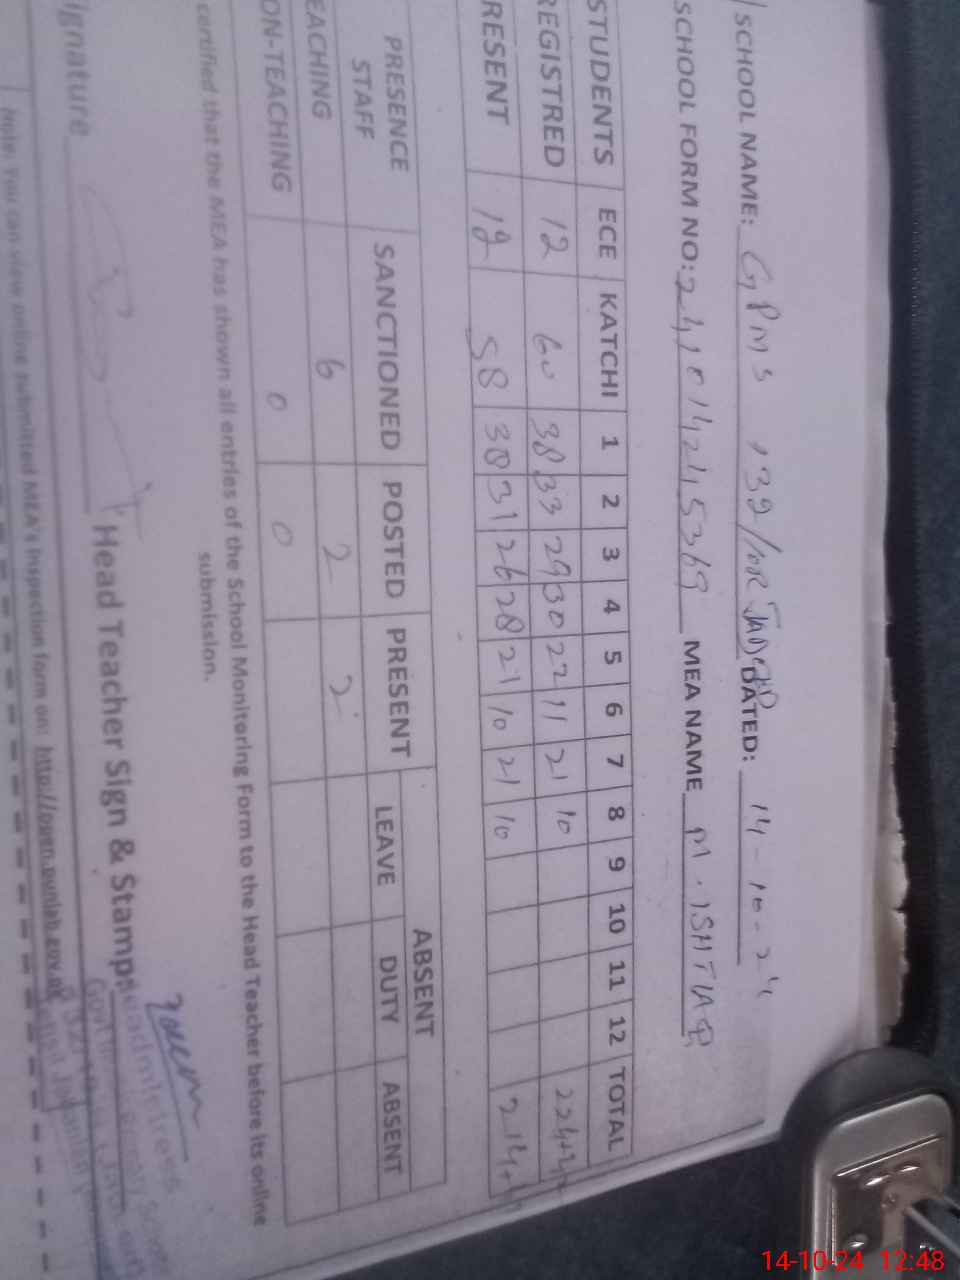 SCHOOL NAME: GPMS 132/10R DATED: 14-10-24
SCHOOL FORM NO: MEA NAME M. ISHTIAQ
STUDENTS ECE KATCHI 1 2 3 4 5 6 7 8 9 10 11 12 TOTAL
REGISTRED 12 60 38 33 29 30 22 11 21 10
RESENT 12 58 38 31 26 28 21 10 21 10
PRESENCE STAFF SANCTIONED POSTED PRESENT ABSENT
LEAVE DUTY ABSENT
EACHING 6 2 2
ON-TEACHING 0 0
certified that the MEA has shown all entries of the School Monitoring Form to the Head Teacher before its online
submission.
ignature Head Teacher Sign & Stamp
Note: You can view online submitted MEA's inspection form on: http://open.punjab.gov.pk
14-10-24 12:48